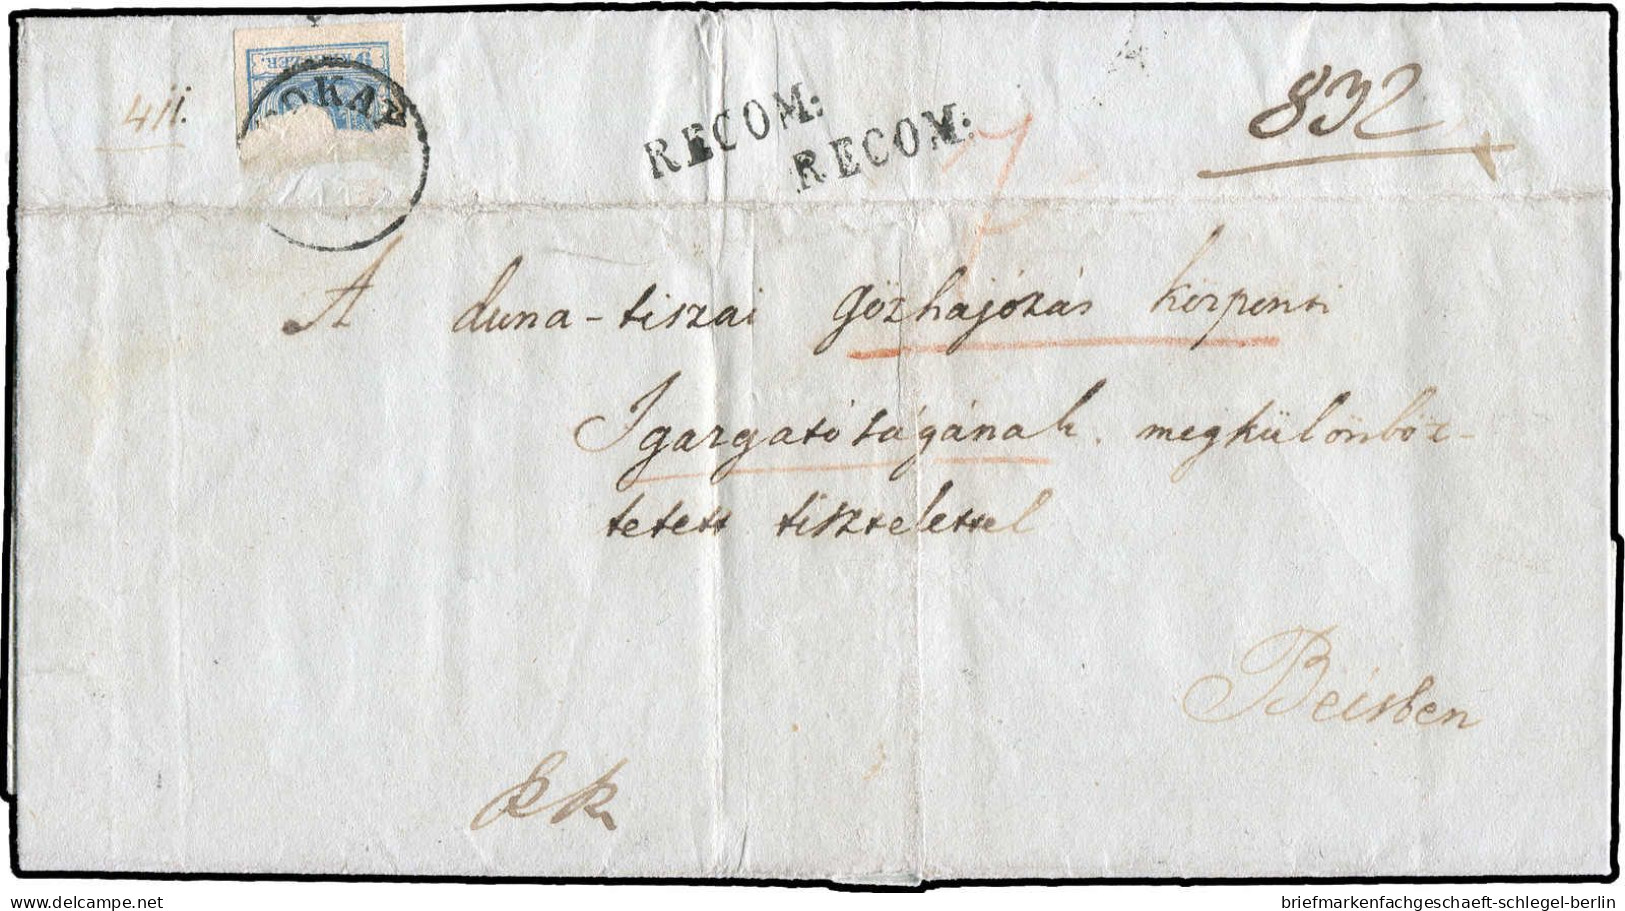 4/11.
RECOM:
RECOM:
832
A duna-tiszai gözhajózás központi
Igazgatóságának megkülönböz-
tetett tisztelettel
Bécsben
delcampe.net
briefmarkenfachgeschaeft-schlegel-berlin